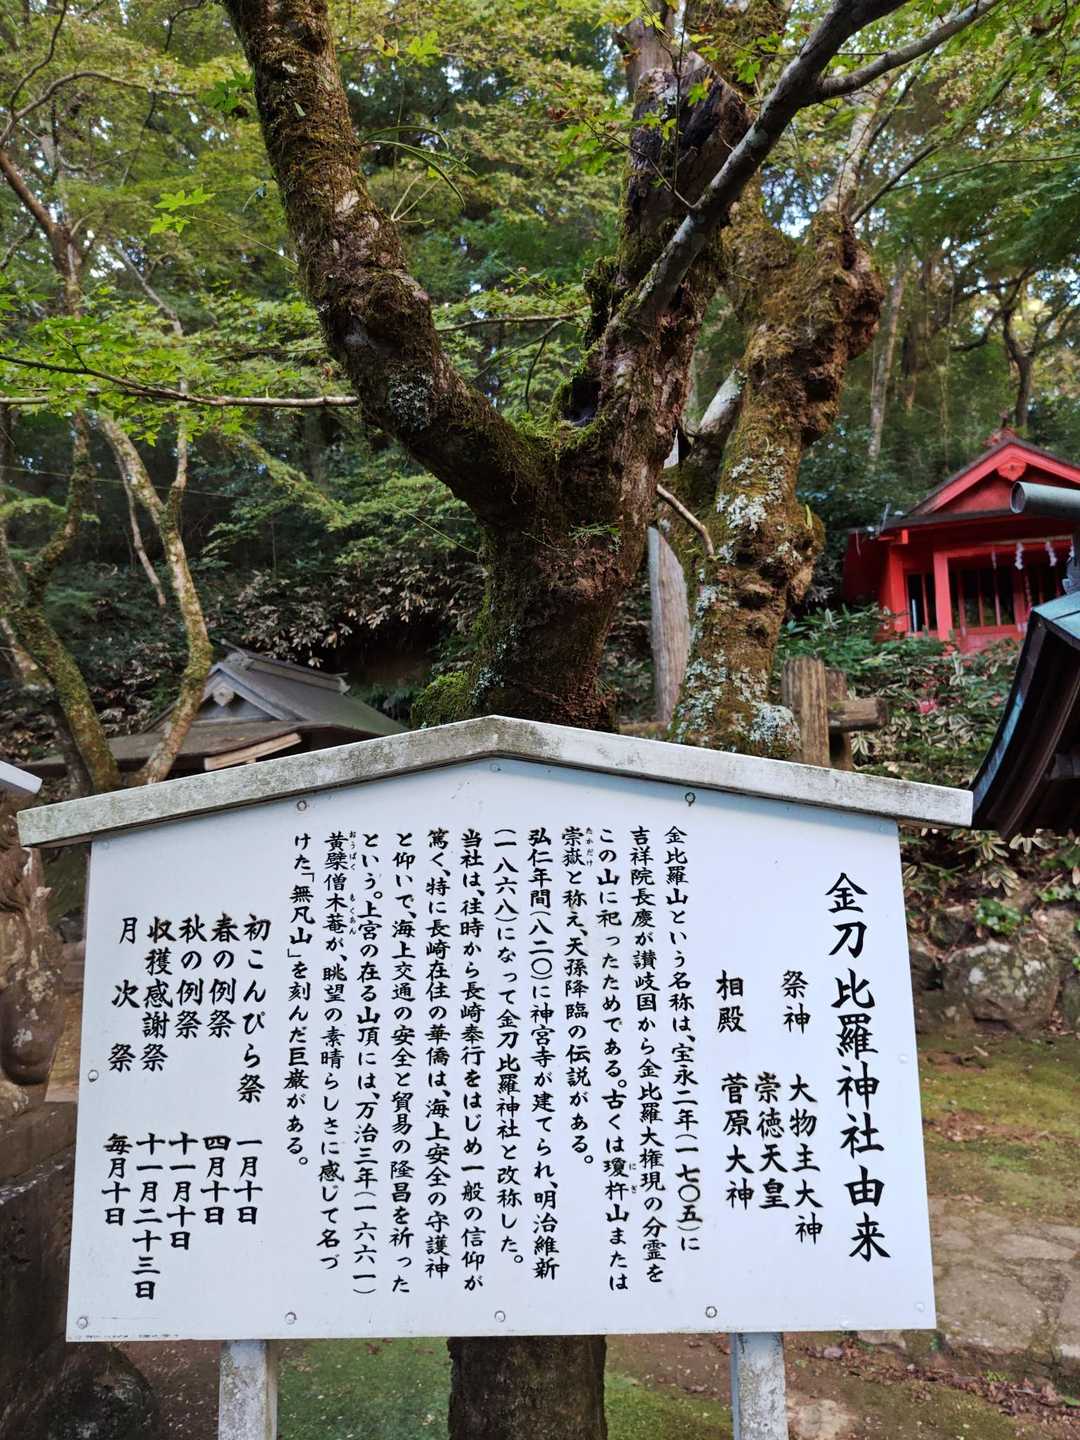 金刀比羅神社由来
祭神 大物主大神
崇徳天皇
相殿 菅原大神
金比羅山という名称は、宝永二年(一七〇五)に
吉祥院長慶が讃岐国から金比羅大権現の分霊を
この山に祀ったためである。古くは瓊杵山または
崇嶽と称え、天孫降臨の伝説がある。
弘仁年間(八二〇)に神宮寺が建てられ、明治維新
(一八六八)になって金刀比羅神社と改称した。
当社は、往時から長崎奉行をはじめ一般の信仰が
篤く、特に長崎在住の華僑は、海上安全の守護神
と仰いで、海上交通の安全と貿易の隆昌を祈った
という。上宮の在る山頂には、万治三年(一六六一)
黄檗僧木菴が、眺望の素晴らしさに感じて名づ
けた「無凡山」を刻んだ巨巌がある。
初こんぴら祭 一月十日
春の例祭 四月十日
秋の例祭 十一月十日
収獲感謝祭 十一月二十三日
月次祭 毎月十日